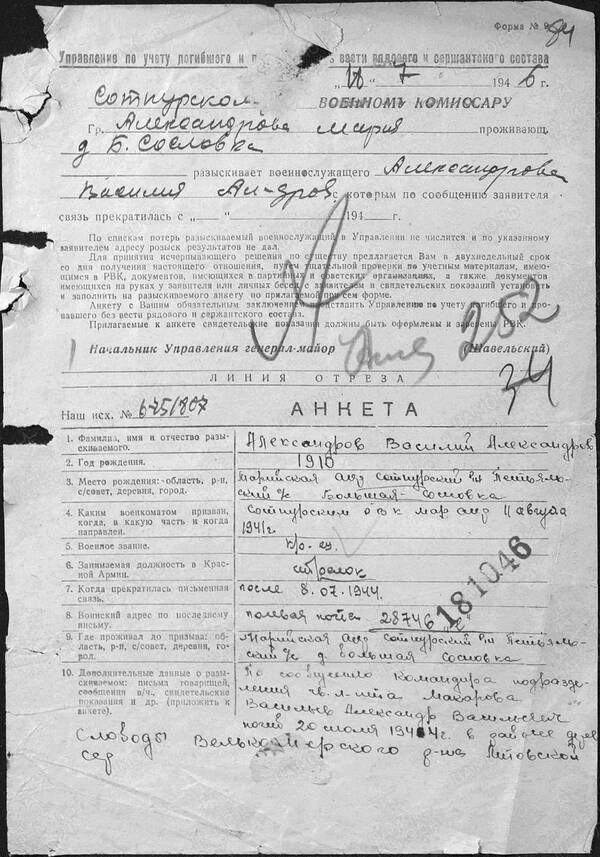 Форма № 9
84
Управление по учету погибшего и вести рядового и сержантского состава
"18" 7 1946 г.
Сотнурском ВОЕННОМУ КОМИССАРУ
Гр. Александрова Мария проживающ.
д Б. Сословка
разыскивает военнослужащего Александрова
Василия Ал-дров с которым по сообщению заявителя
связь прекратилась с „ “ 194 г.
По спискам потерь разыскиваемый военнослужащий в Управлении не числится и по указанному
заявителем адресу розыск результатов не дал.
Для принятия исчерпывающего решения по существу предлагается Вам в двухнедельный срок
со дня получения настоящего отношения, путем тщательной проверки по учетным материалам, имею-
щимся в РВК, документов, имеющихся в партийных и советских организациях, а также документов
имеющихся на руках у заявителя или личных бесед с заявителем и свидетельских показаний установить
и заполнить на разыскиваемого анкету по прилагаемой всем форме.
Анкету с Вашим обязательным заключением представить Управлению по учету погибшего и про-
павшего без вести рядового и сержантского состава.
Прилагаемые к анкете свидетельские показания должны быть оформлены и заверены РВК.
252
Начальник Управления генерал-майор (Шавельский)
ЛИНИЯ ОТРЕЗА
34
Наш исх. № 675/807 АНКЕТА
1. Фамилия, имя и отчество разы-
скиваемого. Александров Василий Александров
2. Год рождения. 1910
3. Место рождения: область, р-н,
с/совет, деревня, город. Марийская АССР Сотнурский р-н Петъяль-
ский с/с Большая-Сословка
4. Каким военкоматом призван,
когда, в какую часть и когда
направлен. Сотнурским РВК Мар АССР 11 августа
1941г.
5. Военное звание. кр-ец.
6. Занимаемая должность в Крас-
ной Армии. стрелок
7. Когда прекратилась письменная
связь. после 8.07.1944.
8. Воинский адрес по последнему
письму. полевая почта 28746
181046
9. Где проживал до призыва: об-
ласть, р-н, с/совет, деревня, го-
род. Марийская АССР Сотнурский р-н Петъяль-
ский с/с д. Большая Сословка
10. Дополнительные данные о ра-
зыскиваемом: письма товарищей,
сообщения в/ч., свидетельские
показания и др. (приложить к
анкете). По сообщению командира подразде-
ления гв. л-нта Макарова
Васильев Александр Васильевич
погиб 20 июля 1944г в районе дерев
Слободы р-на Литовской
ССР